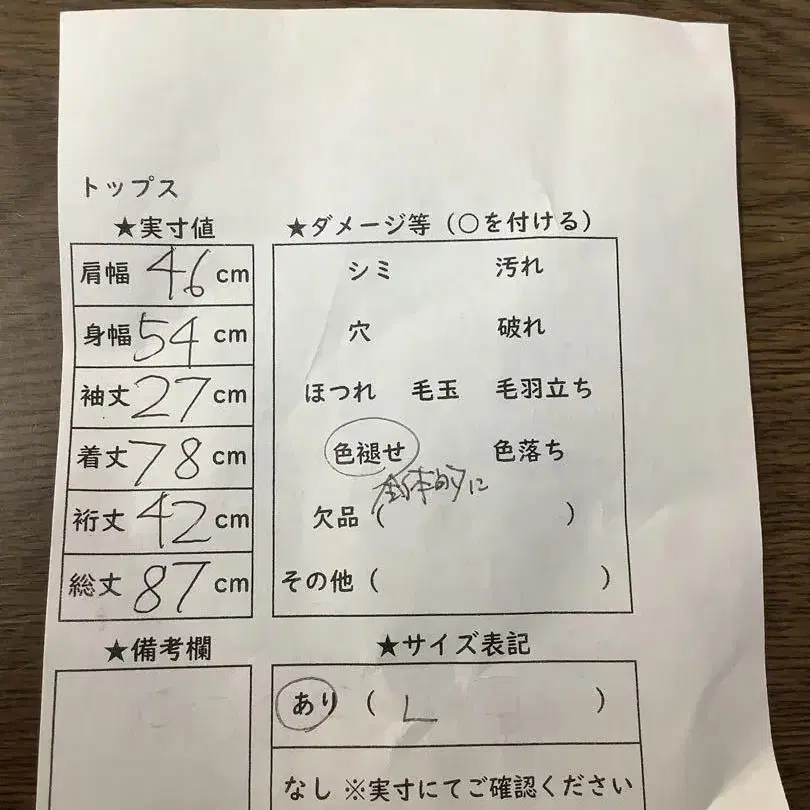 トップス
★実寸値
肩幅 46 cm
身幅 54 cm
袖丈 27 cm
着丈 78 cm
裄丈 42 cm
総丈 87 cm
★ダメージ等（○を付ける）
シミ 汚れ
穴 破れ
ほつれ 毛玉 毛羽立ち
色褪せ 色落ち
全体的に
欠品（ ）
その他（ ）
★備考欄
★サイズ表記
あり（ L ）
なし ※実寸にてご確認ください